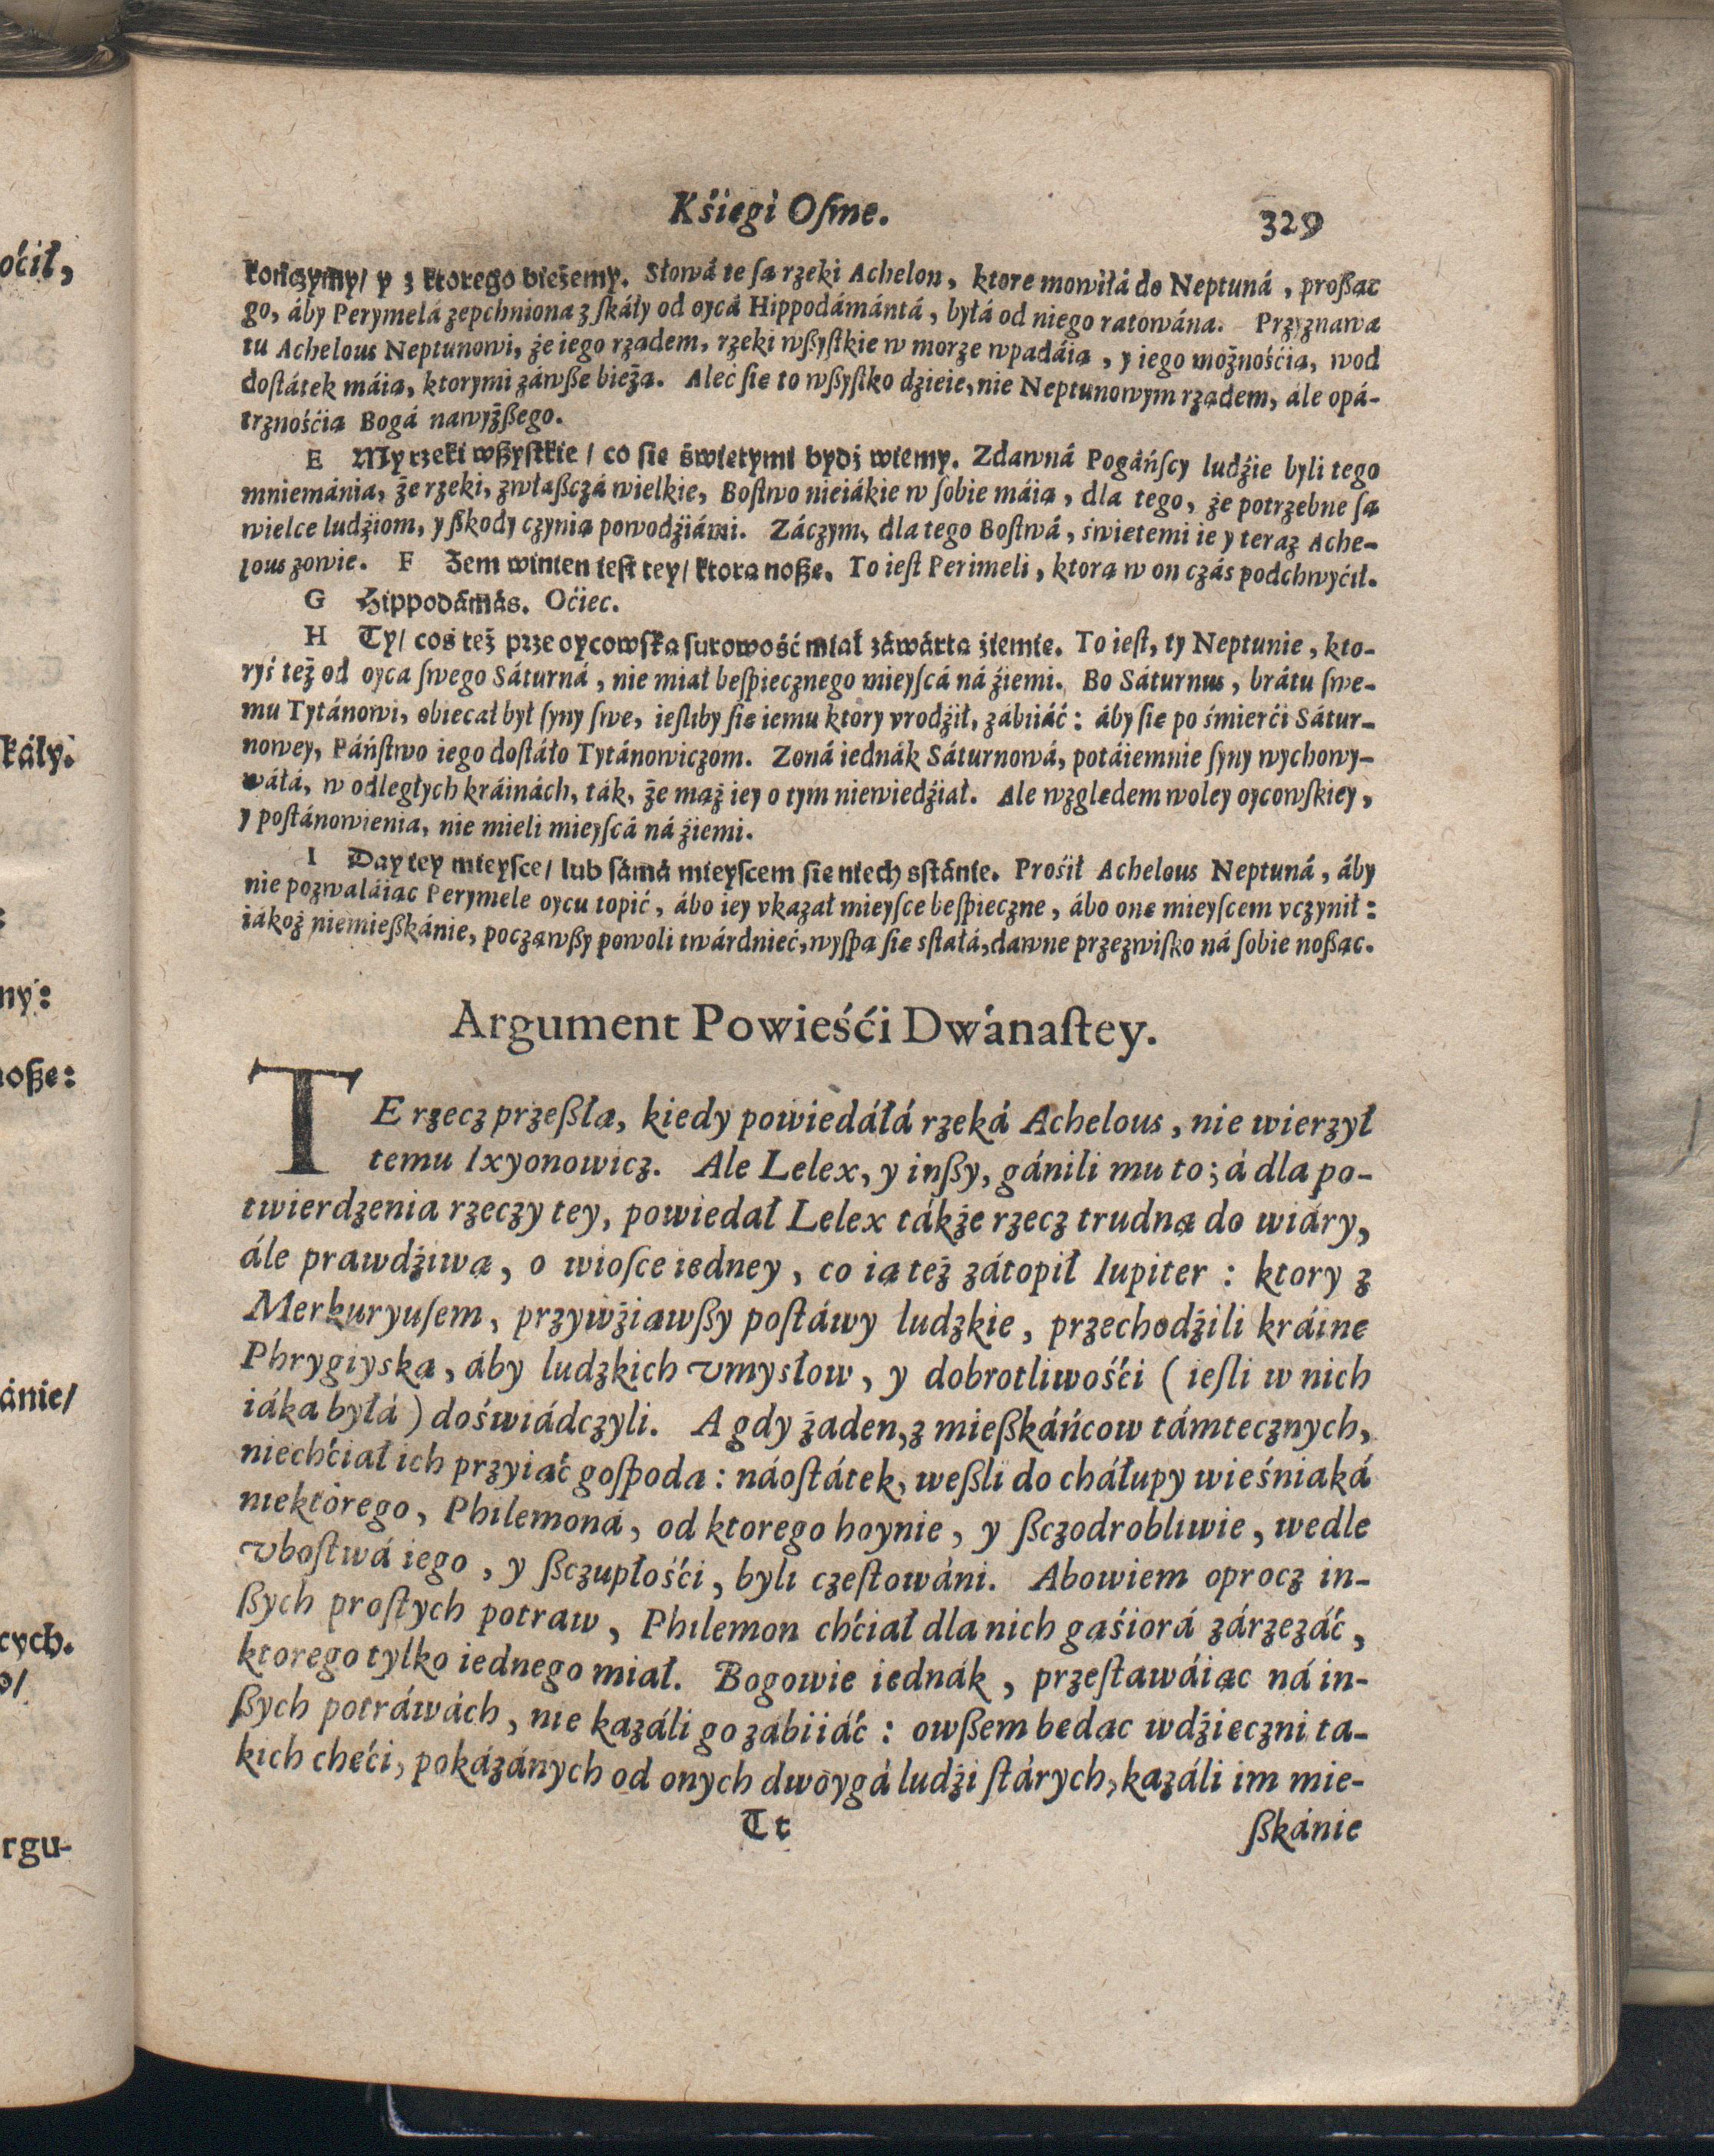 Kśięgi Oſme. 329
kończymy/ y z ktorego bieżemy. Słowá te ſą rzeki Achelon, ktore mowiłá do Neptuná, proßąc
go, áby Perymelá zepchniona z ſkáły od oycá Hippodámántá, byłá od niego ratowána. Przyznawa
tu Achelous Neptunowi, że iego rządem, rzeki wßyſtkie w morze wpadáią, y iego możnośćią, wod
doſtátek máią, ktorymi záwße bieżą. Aleć ſię to wßyſtko dzieie, nie Neptunowym rządem, ále opá-
trznośćią Bogá nawyżßego.
E My rzeki wßyſtkie / co ſię świętymi bydź wiemy. Zdawná Pogáńſcy ludźie byli tego
mniemánia, że rzeki, zwłaßczá wielkie, Boſtwo nieiákie w ſobie máią, dla tego, że potrzebne ſą
wielce ludźiom, y ßkody czynią powodźiámi. Záczym, dla tego Boſtwá, świętemi ie y teraz Ache-
lous zowie. F Żem winien ieſt tey/ ktorą noßę. To ieſt Perimeli, ktorą w on czás podchwyćił.
G Hippodámás. Oćiec.
H Ty/ coś też prze oycowſką ſurowość miał záwártą źiemię. To ieſt, ty Neptunie, kto-
ryś też od oyca ſwego Sáturná, nie miał beſpiecznego mieyſcá ná źiemi. Bo Sáturnus, brátu ſwe-
mu Tytánowi, obiecał był ſyny ſwe, ieſliby ſię iemu ktory vrodźił, zábiiáć: áby ſię po śmierći Sátur-
nowey, Páńſtwo iego doſtáło Tytánowiczom. Zoná iednák Sáturnowá, potáiemnie ſyny wychowy-
wáłá, w odległych kráinách, ták, że mąż iey o tym niewiedźiał. Ale względem woley oycowſkiey,
y poſtánowienia, nie mieli mieyſcá ná źiemi.
I Day iey mieyſce/ lub ſámá mieyſcem ſię niech sſtánie. Prośił Achelous Neptuná, áby
nie pozwaláiąc Perymele oycu topić, ábo iey vkazał mieyſce beſpieczne, ábo onę mieyſcem vczynił:
iákoż niemießkánie, począwßy powoli twárdnieć, wyſpą ſię sſtałá, dawne przezwiſko ná ſobie noßąc.
Argument Powieśći Dwánaſtey.
TE rzecz przeßłą, kiedy powiedáłá rzeká Achelous, nie wierzył
temu Ixyonowicz. Ale Lelex, y inßy, gánili mu to; á dla po-
twierdzenia rzeczy tey, powiedał Lelex tákże rzecz trudną do wiáry,
ále prawdźiwą, o wioſce iedney, co ią też zátopił Iupiter: ktory z
Merkuryuſem, przywźiawßy poſtáwy ludzkie, przechodźili kráinę
Phrygiyską, áby ludzkich vmysłow, y dobrotliwośći (ieſli w nich
iáka byłá) doświádczyli. A gdy żaden, z mießkáńcow támtecznych,
niechćiał ich przyiąć goſpodą: náoſtátek, weßli do cháłupy wieśniaká
niektorego, Philemoná, od ktorego hoynie, y ßczodrobliwie, wedle
vboſtwá iego, y ßczupłośći, byli częſtowáni. Abowiem oprocz in-
ßych proſtych potraw, Philemon chćiał dla nich gąśiorá zárzezáć,
ktorego tylko iednego miał. Bogowie iednák, przeſtawáiąc ná in-
ßych potráwách, nie kazáli go zábiiáć: owßem będąc wdźięczni ta-
kich chęći, pokázánych od onych dwoygá ludźi ſtárych, kazáli im mie-
Tt ßkánie